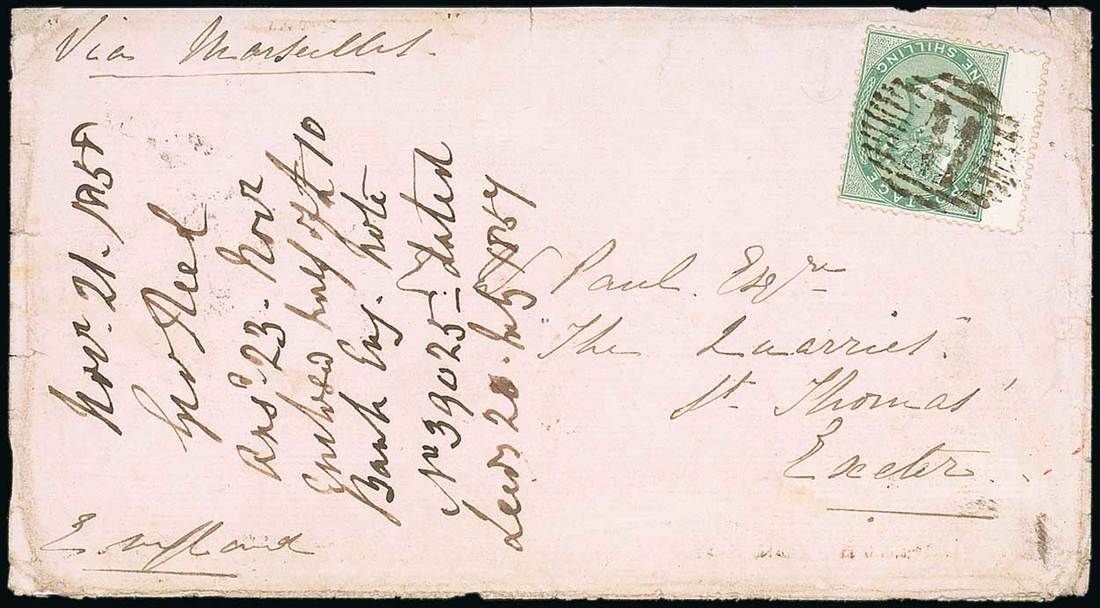 Via Marseilles
POSTAGE
ONE SHILLING
Paul. Esqre
"The Quarries"
St Thomas'
Exeter.
England
Novr 21. 1858
Geo Neel
Ansd 23. Novr
Enclosed half of the 10
Bank Eng. Note
No 39025 - dated
Leeds 20 July 1857